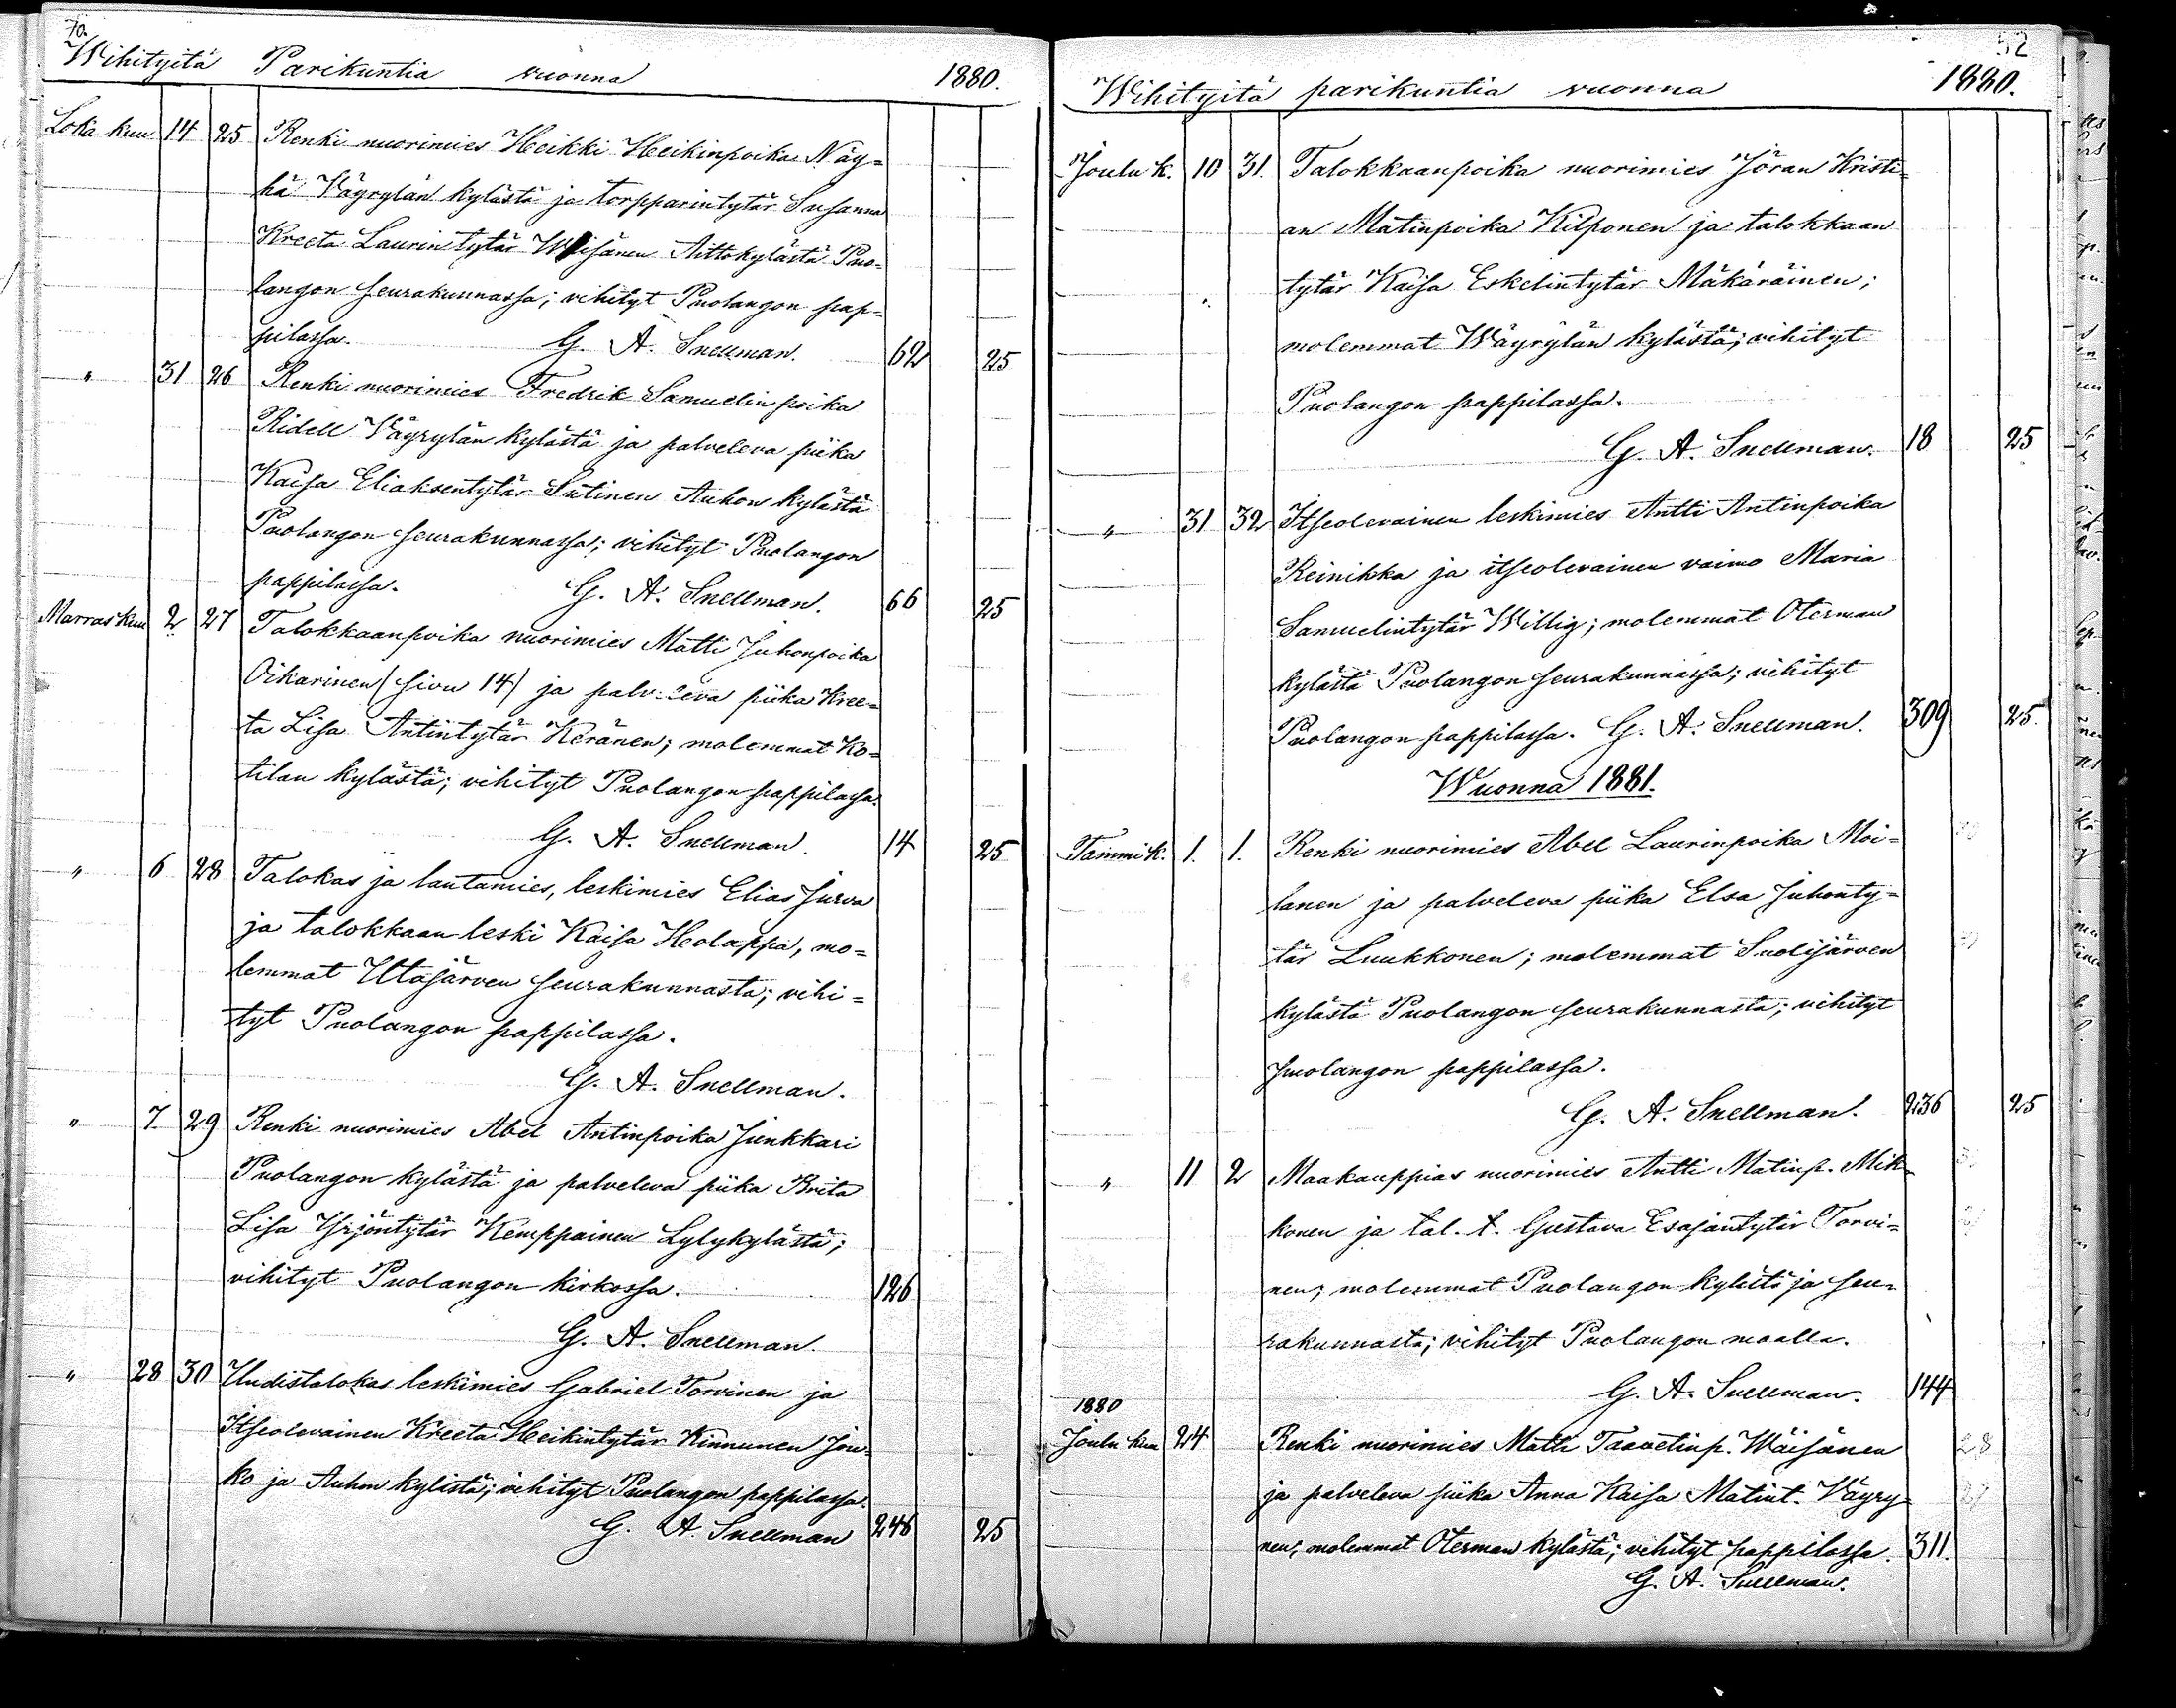 70.
Wihityitä Parikuntia vuonna 1880.
Loka kuu 14 25 Renki nuorimies Heikki Heikinpoika Näy=
hä Väyrylän kylästä ja torpparintytär Susanna
Kreeta Laurintytär Wäisänen Aittokylästä Puo=
langon seurakunnassa; vihityt Puolangon pap=
pilassa. G. A. Snellman. 62 25
" 31 26 Renki nuorimies Fredrik Samuelin poika
Ridell Väyrylän kylästä ja palveleva piika
Kaisa Eliaksentytär Sutinen Auhon kylästä
Puolangon seurakunnassa; vihityt Puolangon
pappilassa. G. A. Snellman. 66 25
Marras kuu 2 27 Talokkaanpoika nuorimies Matti Juhonpoika
Oikarinen (sivu 14) ja palveleva piika Kree=
ta Lisa Antintytär Keränen; molemmat Ko=
tilan kylästä; vihityt Puolangon pappilassa.
G. A. Snellman. 14 25
" 6 28 Talokas ja lautamies, leskimies Elias Jurva
ja talokkaan leski Kaisa Holappa, mo=
lemmat Utajärven seurakunnasta; vihi=
tyt Puolangon pappilassa.
G. A. Snellman.
" 7. 29 Renki nuorimies Abel Antinpoika Junkkari
Puolangon kylästä ja palveleva piika Brita
Lisa Yrjöntytär Kemppainen Lylykylästä;
vihityt Puolangon kirkossa. 126
G. A. Snellman.
" 28 30 Uudistalokas leskimies Gabriel Torvinen ja
Itseolevainen Kreeta Heikintytär Kinnunen Jou=
ko ja Auhon kylistä; vihityt Puolangon pappilassa.
G. A. Snellman 248 25
52
Wihityitä parikuntia vuonna 1880.
Joulu k. 10 31. Talokkaanpoika nuorimies Jöran Kristi=
an Matinpoika Kilponen ja talokkaan
tytär Kaisa Eskelintytär Mäkäräinen;
molemmat Wäyrylän kylästä; vihityt
Puolangon pappilassa.
G. A. Snellman. 18 25
" 31 32 Itseolevainen leskimies Antti Antinpoika
Reinikka ja itseolevainen vaimo Maria
Samuelintytär Willig; molemmat Oterman
kylästä Puolangon seurakunnassa; vihityt
Puolangon pappilassa. G. A. Snellman. 309 25.
Wuonna 1881.
Tammi k. 1. 1. Renki nuorimies Abel Laurinpoika Moi=
lanen ja palveleva piika Elsa Juhonty=
tär Luukkonen; molemmat Suolijärven
kylästä Puolangon seurakunnasta; vihityt
puolangon pappilassa.
G. A. Snellman. 236 25
" 11 2 Maakauppias nuorimies Antti Matinp. Mik=
konen ja tal. t. Gustava Esajantytär Torvi=
nen; molemmat Puolangon kylästä ja seu=
rakunnasta; vihityt Puolangon maalla.
G. A. Snellman. 144
1880
Joulu kuu 24 Renki nuorimies Matti Taavetinp. Wäisänen 28
ja palveleva piika Anna Kaisa Matint. Väyry=
nen; molemmat Oterman kylästä; vihityt pappilassa. 311.
G. A. Snellman.